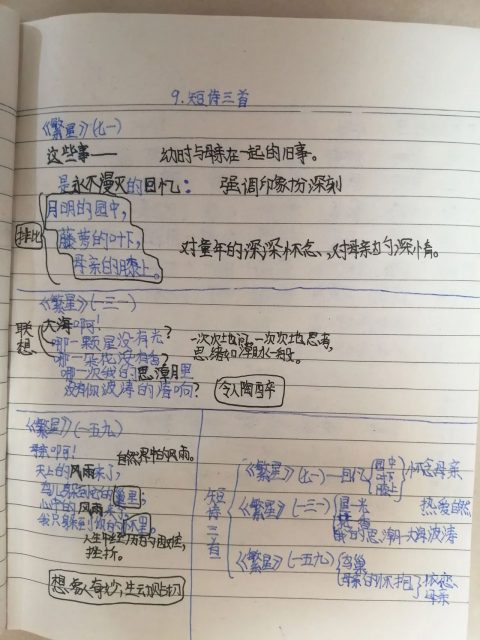 9.短诗三首
《繁星》(七一)
这些事—— 幼时与母亲在一起的旧事。
是永不漫灭的回忆: 强调印象极深刻
月明的园中,
藤萝的叶下,
母亲的膝上。
排比
对童年的深深怀念,对母亲的深情。
《繁星》(一三一)
联想
大海啊!
哪一颗星没有光?
哪一朵花没有香?
哪一次我的思潮里
没有你波涛的清响?
一次次地问,一次次地思考,
思绪如潮水一般。
令人陶醉
《繁星》(一五九)
母亲啊!
自然界中的风雨。
天上的风雨来了,
鸟儿躲到它的巢里;
心中的风雨来了,
我只躲到你的怀里。
人生中经历的困难,
挫折。
想象奇妙,生动贴切
短诗三首
《繁星》(七一)—回忆 园中 叶下 膝上 怀念母亲
《繁星》(一三一) 星光 花香 热爱自然
我的思潮—大海波涛
《繁星》(一五九) 鸟巢
母亲的怀抱
母亲